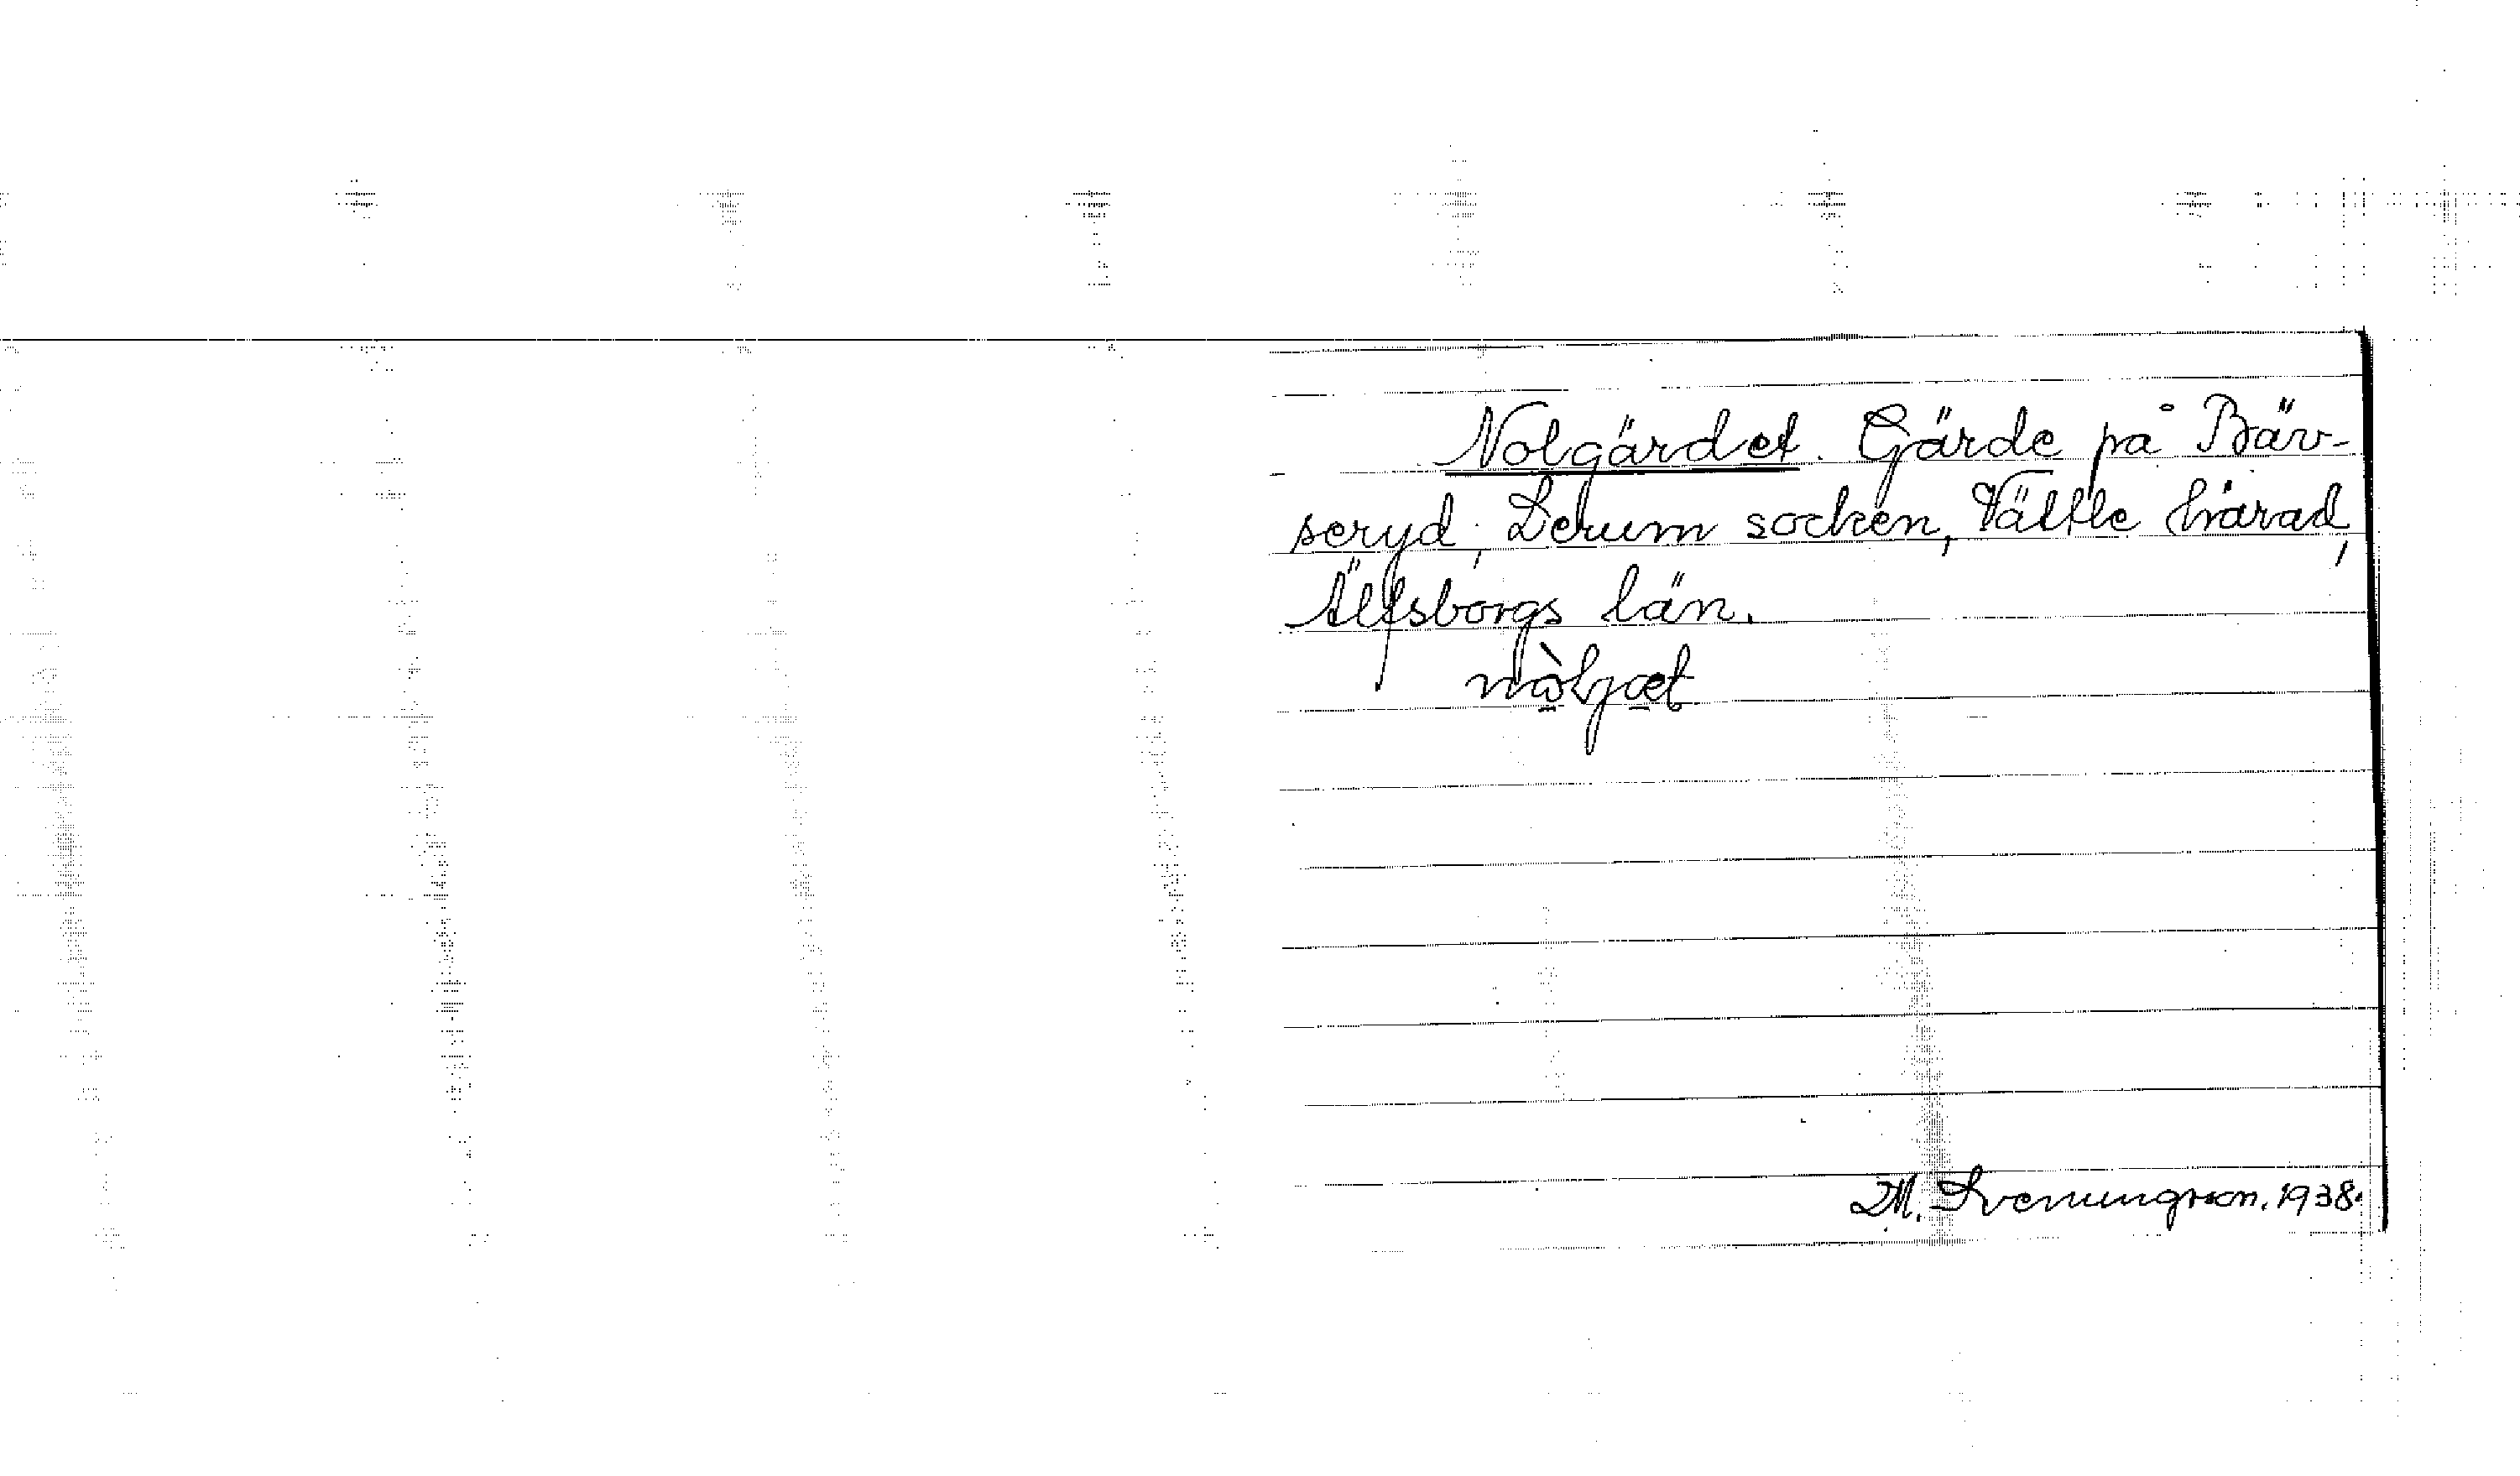 Nolgärdet. Gärde på Bäv-
seryd, Lerum socken, Vättle härad,
Älfsborgs län.
nàljæt
M. Svenungsson. 1938.